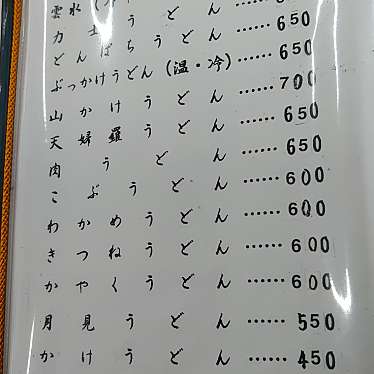 雲水
力士うどん
どんばちうどん……650
ぶっかけうどん(温・冷)……650
山かけうどん……700
天婦羅うどん……650
肉うどん……650
こぶうどん……600
わかめうどん……600
きつねうどん……600
かやくうどん……600
月見うどん……550
かけうどん……450